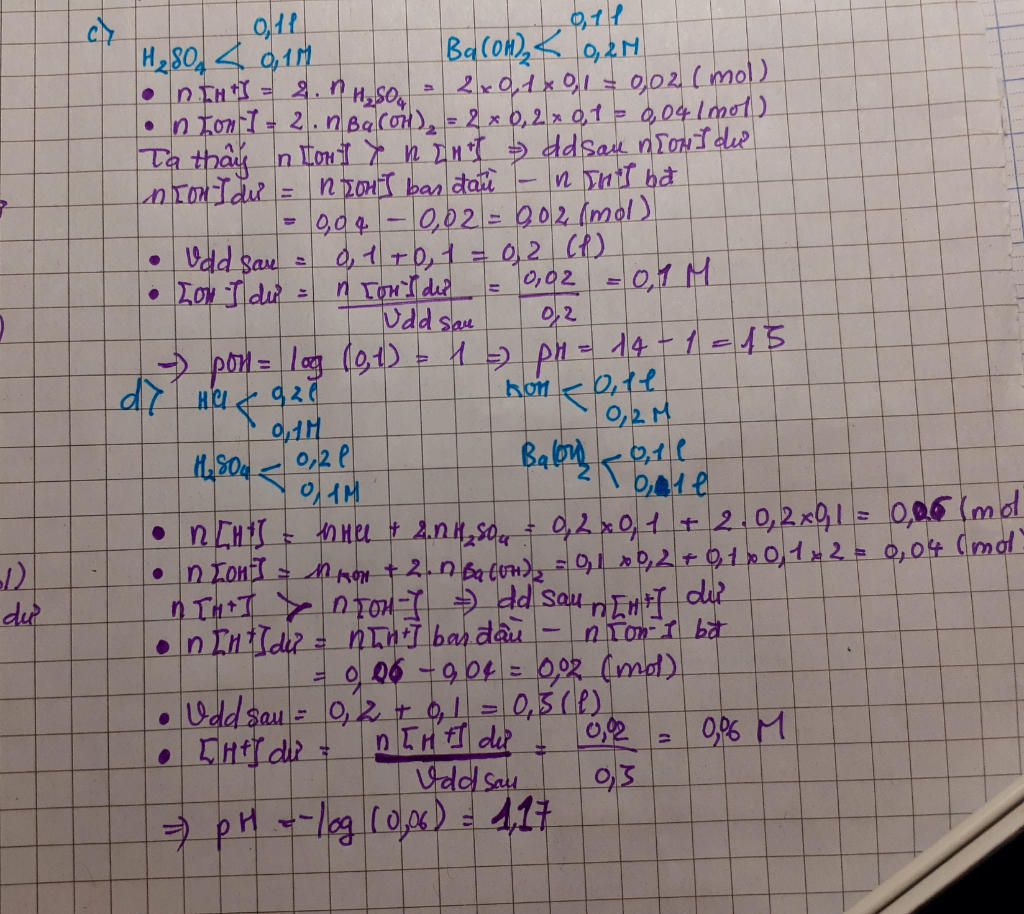 c) H₂SO₄ < 0,1l 0,1M Ba(OH)₂ < 0,1l 0,2M
• n[H⁺] = 2. nH₂SO₄ = 2 x 0,1 x 0,1 = 0,02 (mol)
• n[OH⁻] = 2. nBa(OH)₂ = 2 x 0,2 x 0,1 = 0,04 (mol)
Ta thấy n[OH⁻] > n[H⁺] ⇒ dd sau n[OH⁻] dư
n[OH⁻] dư = n[OH⁻] ban đầu - n[H⁺] bđ
= 0,04 - 0,02 = 0,02 (mol)
• Vdd sau = 0,1 + 0,1 = 0,2 (l)
• [OH⁻] dư = n[OH⁻] dư / Vdd sau = 0,02 / 0,2 = 0,1 M
→ pOH = log (0,1) = 1 ⇒ pH = 14 - 1 = 13
d) HCl < 0,2l 0,1M KOH < 0,1l 0,2M
H₂SO₄ < 0,2l 0,1M Ba(OH)₂ < 0,1l 0,1l
• n[H⁺] = nHCl + 2.nH₂SO₄ = 0,2 x 0,1 + 2. 0,2 x 0,1 = 0,06 (mol
• n[OH⁻] = nKOH + 2. nBa(OH)₂ = 0,1 x 0,2 + 0,1 x 0,1 x 2 = 0,04 (mol)
l)
n[H⁺] > n[OH⁻] ⇒ dd sau n[H⁺] dư
dư
• n[H⁺] dư = n[H⁺] ban đầu - n[OH⁻] bđ
= 0,06 - 0,04 = 0,02 (mol)
• Vdd sau = 0,2 + 0,1 = 0,3 (l)
• [H⁺] dư = n[H⁺] dư / Vdd sau = 0,02 / 0,3 = 0,06 M
⇒ pH = -log (0,06) = 1,17